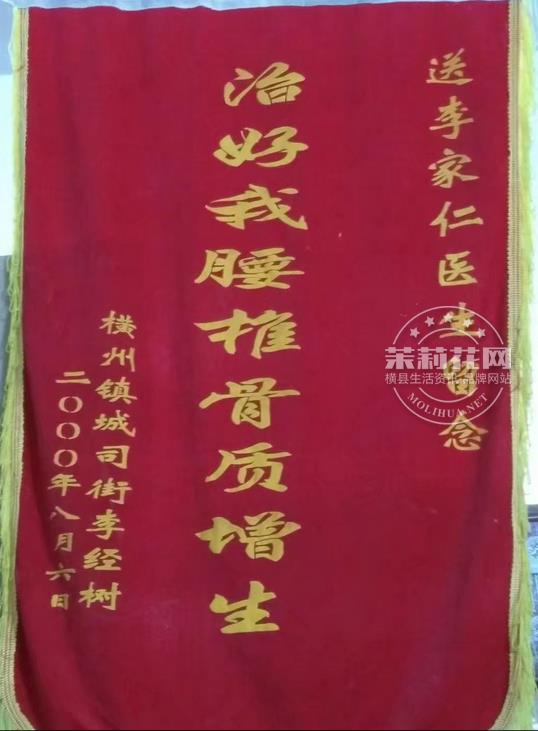 送李家仁医生留念
治好我腰椎骨质增生
横州镇城司街李经树
二〇〇〇年八月六日
茉莉花网
横县生活资讯 品牌网站
MOLIHUA.NET